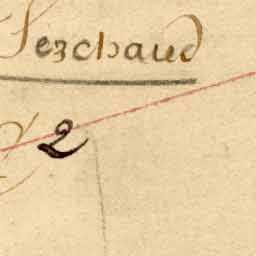 Serchaud
2